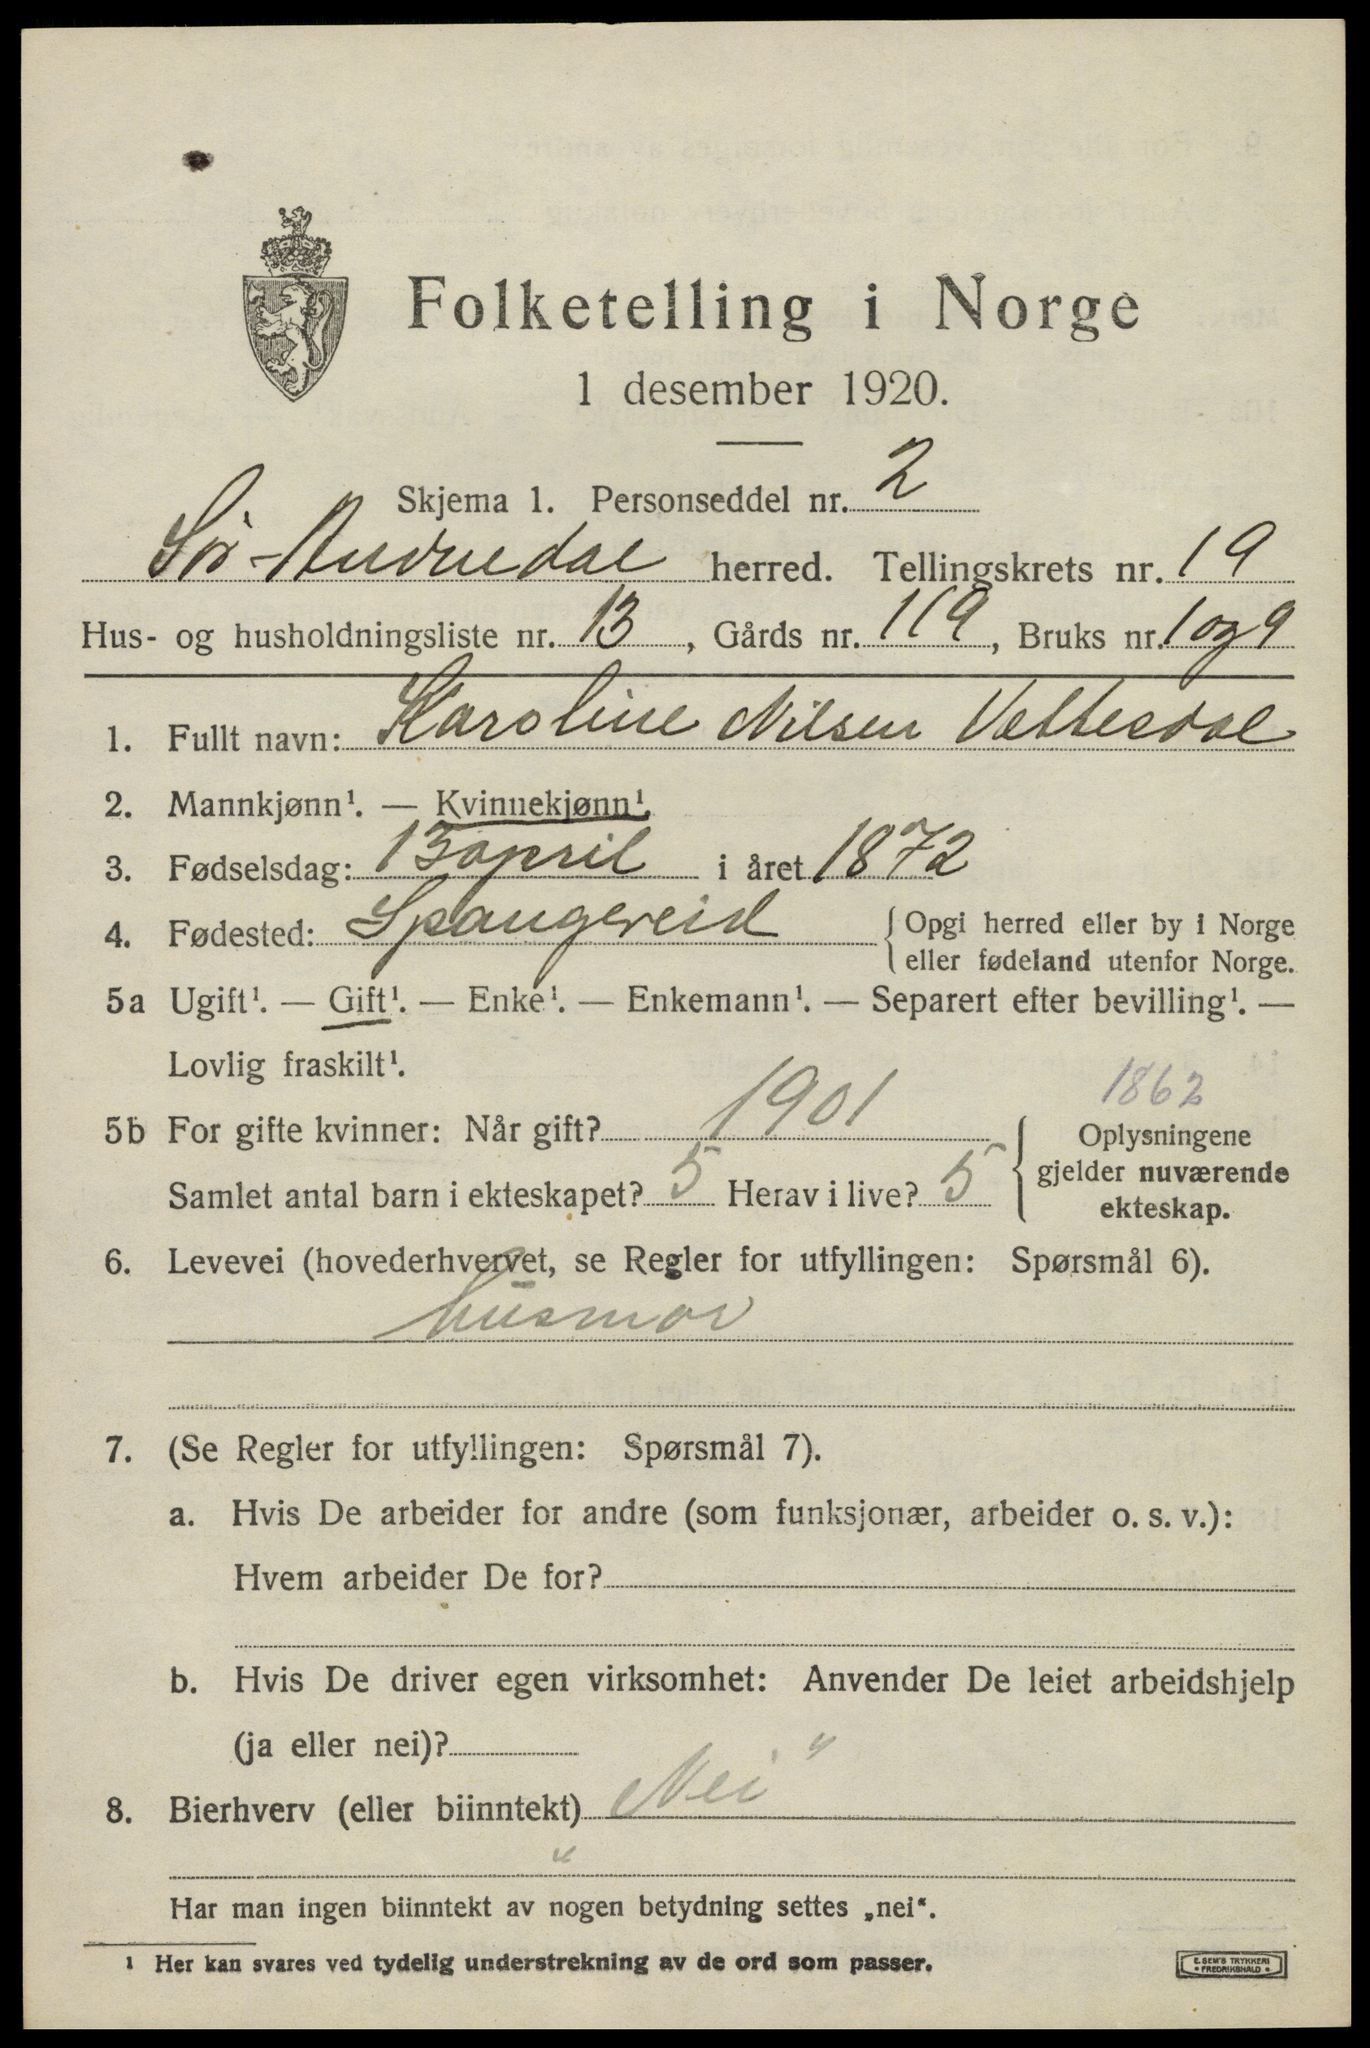 Folketelling i Norge
1 desember 1920.
Skjema 1. Personseddel nr. 2
Sør-Audnedal herred. Tellingskrets nr. 19
Hus- og husholdningsliste nr. 13, Gårds nr. 119, Bruks nr. 1 og 9
1. Fullt navn: Karoline Nilsen Vattesdal
2. Mannkjønn¹. — Kvinnekjønn¹.
3. Fødselsdag: 13 april i året 1872
4. Fødested: Spangereid { Opgi herred eller by i Norge
eller fødeland utenfor Norge.
5a Ugift¹. — Gift¹. — Enke¹. — Enkemann¹. — Separert efter bevilling¹. —
Lovlig fraskilt¹.
1862
5b For gifte kvinner: Når gift? 1901
Samlet antal barn i ekteskapet? 5 Herav i live? 5
{ Oplysningene
gjelder nuværende
ekteskap.
6. Levevei (hovederhvervet, se Regler for utfyllingen: Spørsmål 6).
Husmor
7. (Se Regler for utfyllingen: Spørsmål 7).
a. Hvis De arbeider for andre (som funksjonær, arbeider o. s. v.):
Hvem arbeider De for?
b. Hvis De driver egen virksomhet: Anvender De leiet arbeidshjelp
(ja eller nei)? "
8. Bierhverv (eller biinntekt) Nei
"
Har man ingen biinntekt av nogen betydning settes „nei“.
¹ Her kan svares ved tydelig understrekning av de ord som passer.
E. SEM'S TRYKKERI
• FREDRIKSHALD •